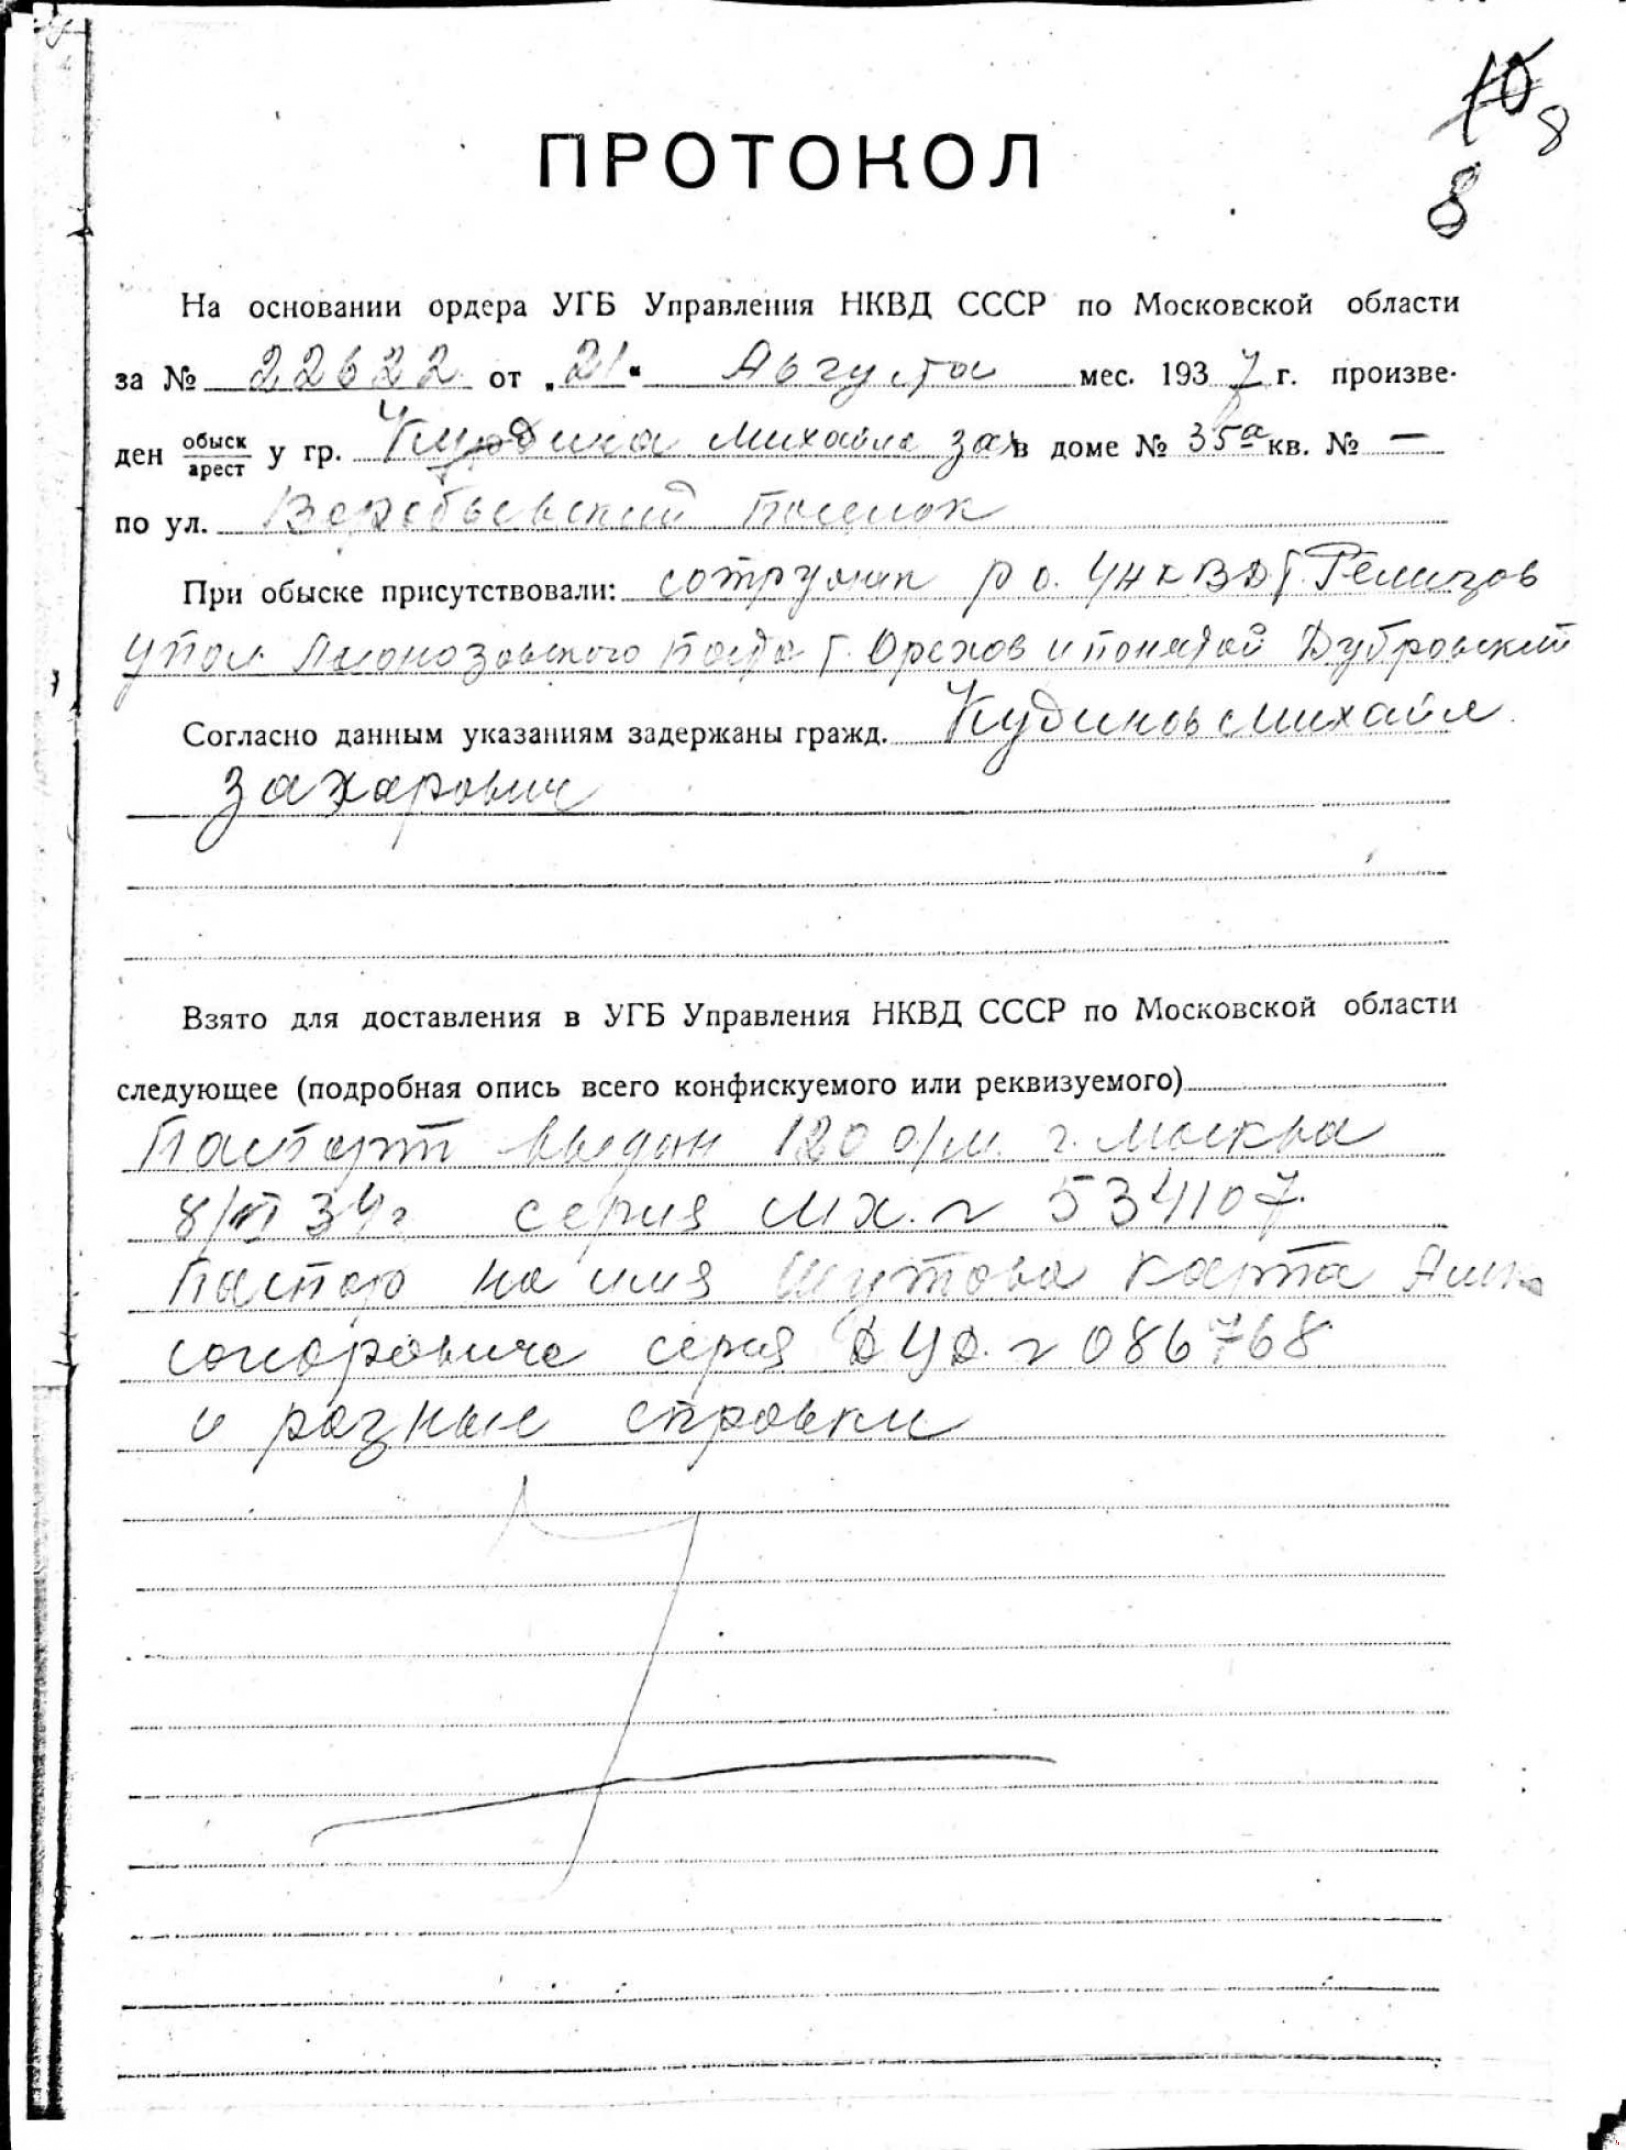 10
8
8
ПРОТОКОЛ
На основании ордера УГБ Управления НКВД СССР по Московской области
за № 22622 от „21“ Августа мес. 1937 г. произве-
ден обыск/арест у гр. Михаила Зах в доме № 35а кв. № —
по ул. Воробьевский Поселок
При обыске присутствовали: сотрудник р о. УНКВД т. Ремизов
упол. Лианозовского т. Орехов и понятой Дубровский
Согласно данным указаниям задержаны гражд. Кудинов Михаил
Захарович
Взято для доставления в УГБ Управления НКВД СССР по Московской области
следующее (подробная опись всего конфискуемого или реквизуемого)
Паспорт выдан 120 о/м. г. Москва
8/VI 34 г серия МХ. № 534107
Паспор на имя Шутова
серия № 086768
и разные справки